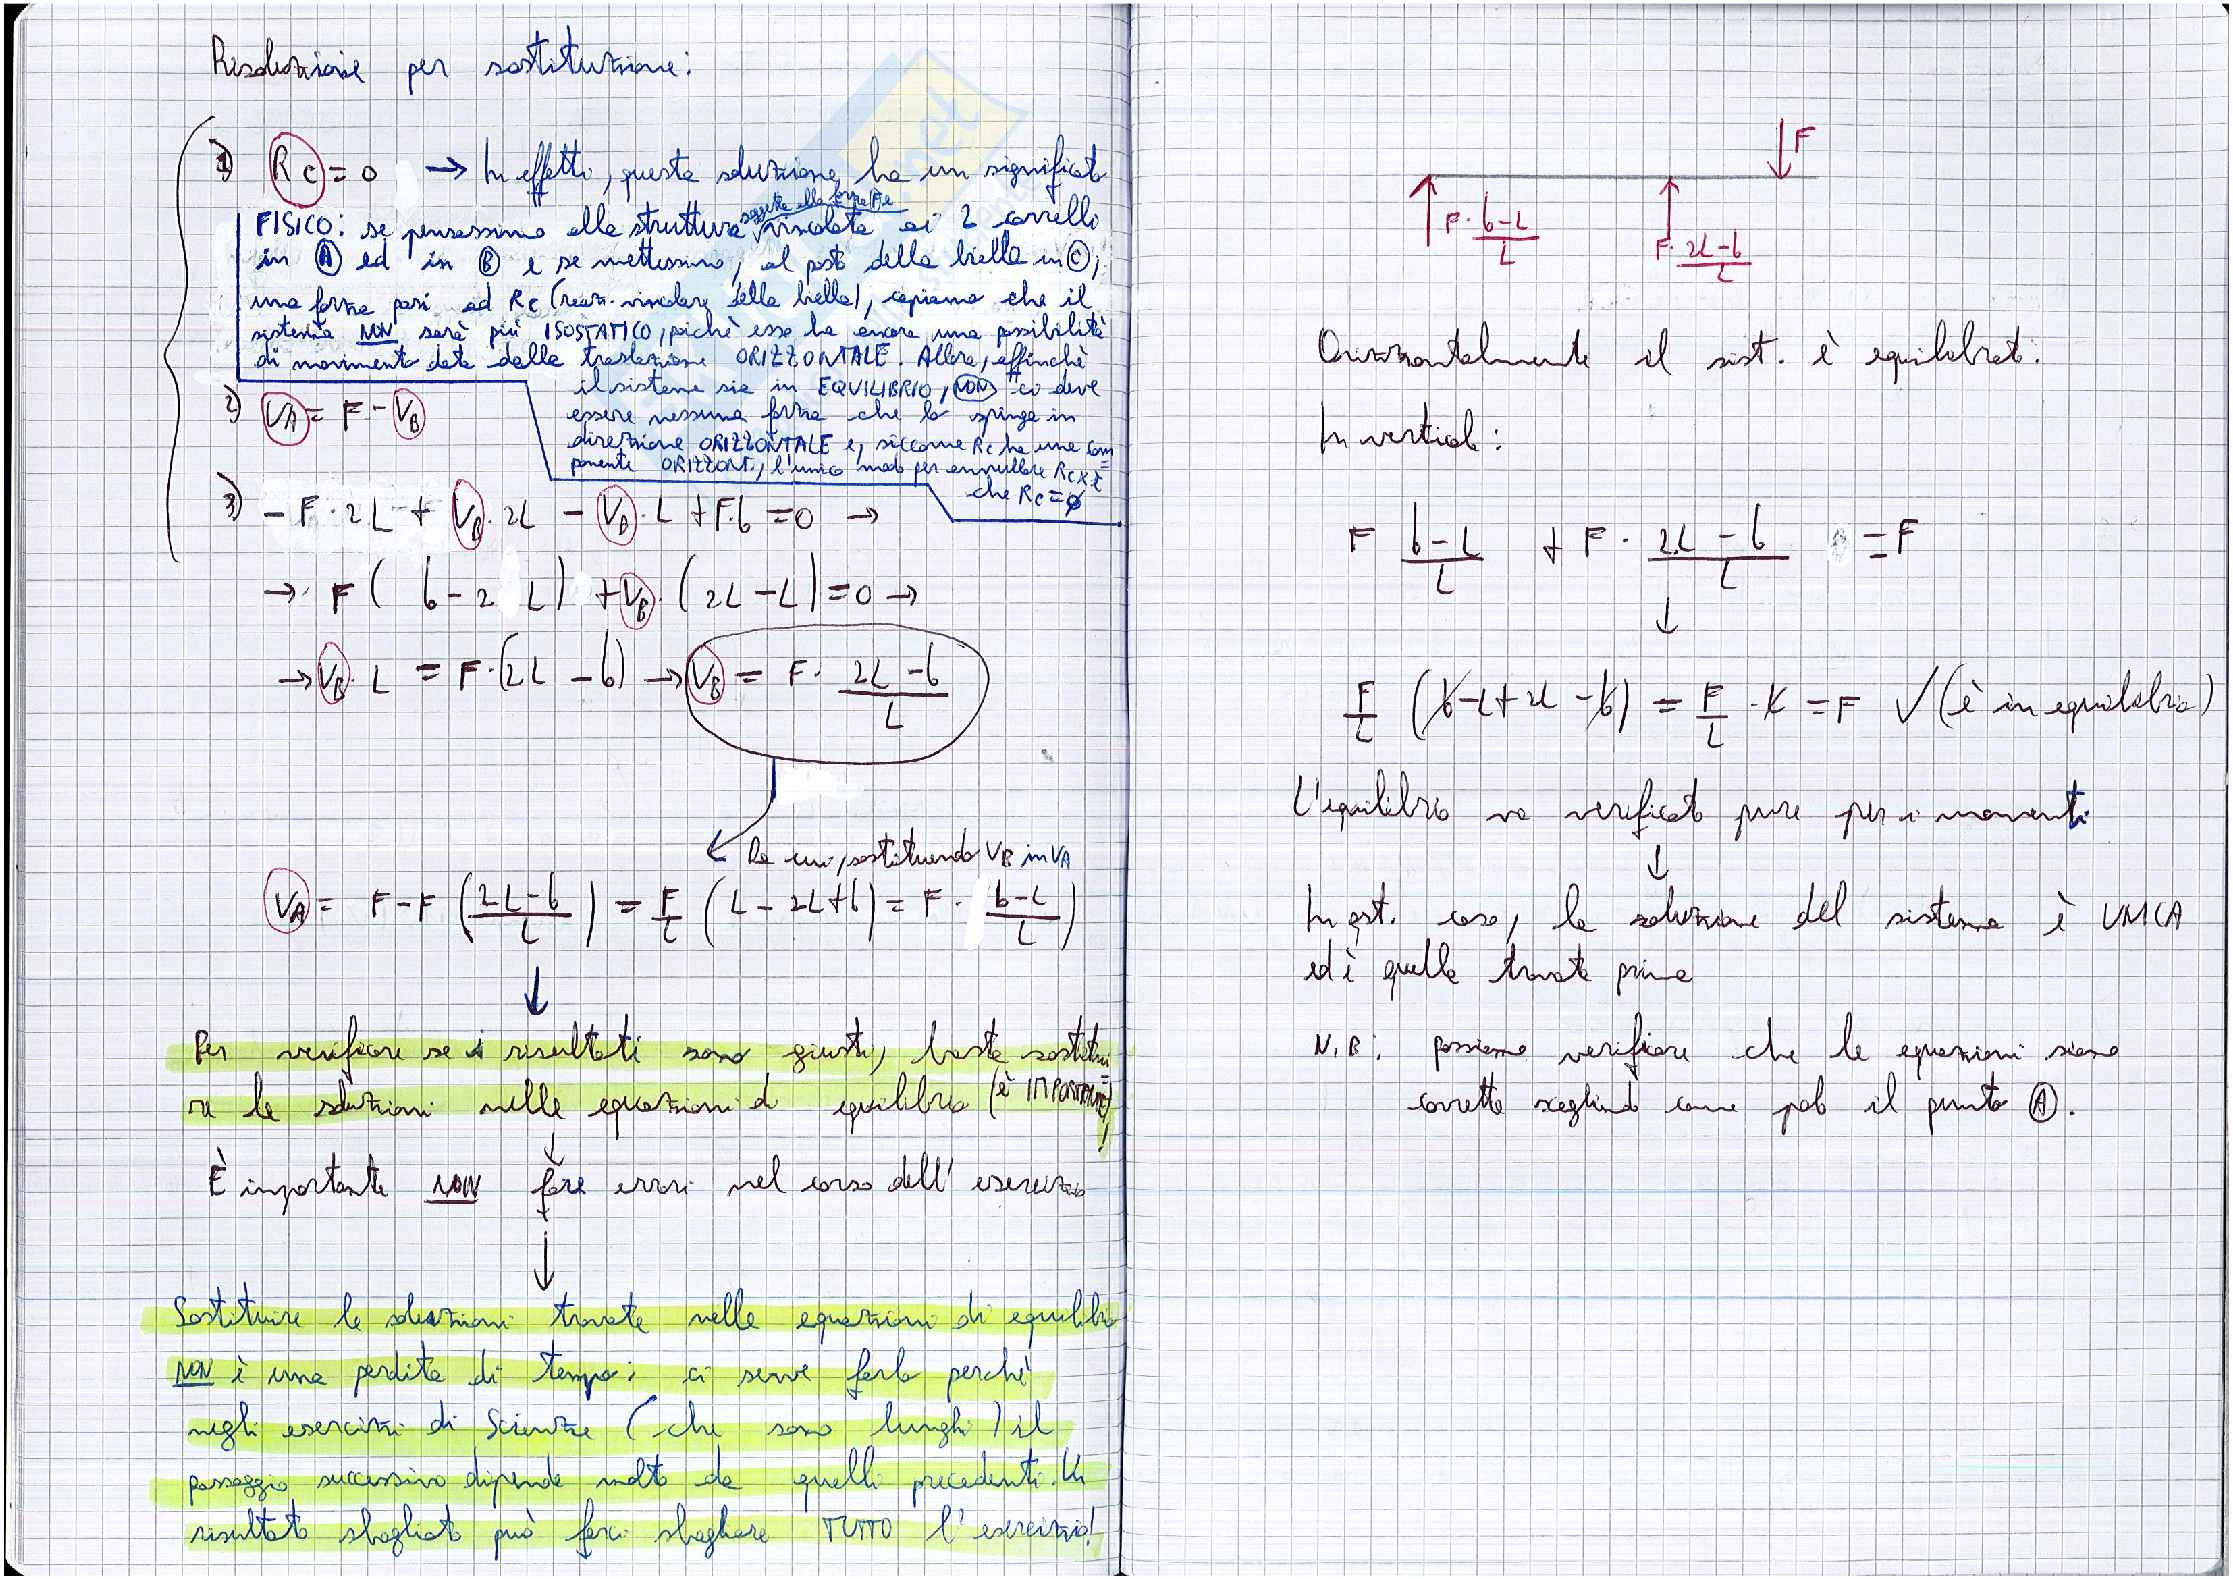 Risoluzione per sostituzione:
1) Rc = 0 → In effetti, questa soluzione ha un significato
FISICO: se pensassimo alla struttura soggetta alla forza F e vincolata ai 2 carrelli
in A ed in B e se mettessimo, al posto della biella in C,
una forza pari ad Rc (reaz. vincolare della biella), capiamo che il
sistema NON sarà più ISOSTATICO, poichè esso ha ancora una possibilità
di movimento data dalla traslazione ORIZZONTALE. Allora, affinchè
il sistema sia in EQUILIBRIO, NON ci deve
essere nessuna forza che lo spinga in
direzione ORIZZONTALE e, siccome Rc ha una com=
ponente ORIZZONT., l'unico modo per annullare Rcx è
che Rc = ∅
2) VA = F - VB
3) - F · 2L + VB · 2L - VB · L + F·b = 0 →
→ F ( b - 2L ) + VB · (2L - L) = 0 →
→ VB · L = F · (2L - b) → VB = F · (2L - b)/L
Da cui, sostituendo VB in VA
VA = F - F ((2L - b)/L) = F/L (L - 2L + b) = F · (b - L)/L
↓
Per verificare se i risultati sono giusti, basta sostitui=
re le soluzioni nelle equazioni di equilibrio (è IMPORTANTE)!
↓
È importante NON fare errori nel corso dell'esercizio
↓
Sostituire le soluzioni trovate nelle equazioni di equilibrio
NON è una perdita di tempo; ci serve farlo perchè
negli esercizi di Scienze (che sono lunghi) il
passaggio successivo dipende molto da quelli precedenti. Un
risultato sbagliato può farci sbagliare TUTTO l'esercizio!
F
F · (b - L)/L
F · (2L - b)/L
Orizzontalmente il sist. è equilibrato.
In verticale:
F (b - L)/L + F · (2L - b)/L = F
↓
F/L (b - L + 2L - b) = F/L · L = F ✓ (è in equilibrio)
L'equilibrio va verificato pure per i momenti
↓
In qst. caso, la soluzione del sistema è UNICA
ed è quella trovata prima
N.B.: possiamo verificare che le equazioni siano
corrette scegliendo come polo il punto A.